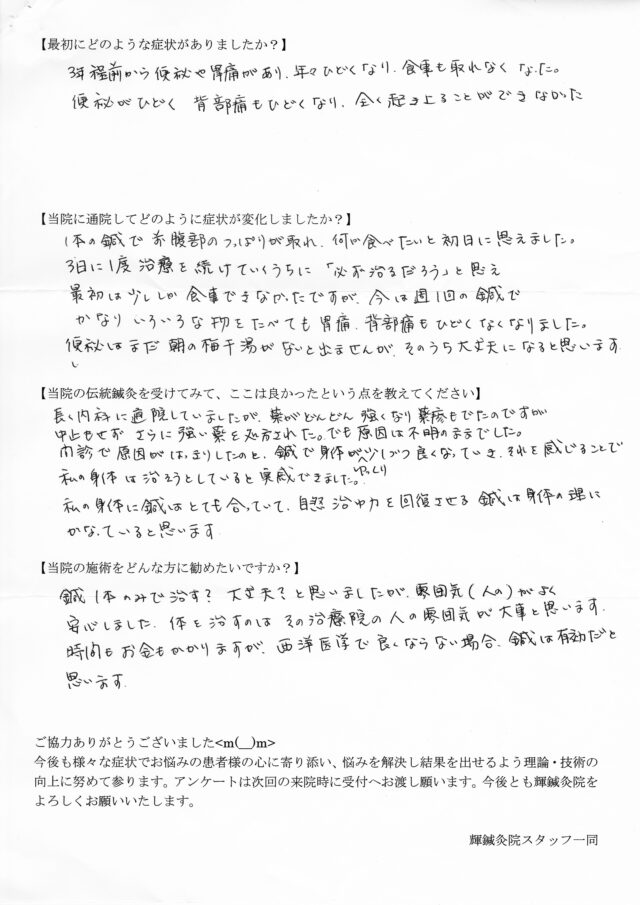 【最初にどのような症状がありましたか？】
3年程前から便秘や胃痛があり、年々ひどくなり、食事も取れなくなった。
便秘がひどく 背部痛もひどくなり、全く起き上ることができなかった
【当院に通院してどのように症状が変化しましたか？】
1本の鍼で 赤腹部のつっぱりが取れ、何か食べたいと初日に思えました。
3日に1度 治療を続けていくうちに「必ず治るだろう」と思え
最初は少ししか食事できなかったですが、今は週1回の鍼で
かなり いろいろな物をたべても胃痛、背部痛もひどくなくなりました。
便秘はまだ 朝の梅干湯がないと出ませんが、そのうち大丈夫になると思います
【当院の伝統鍼灸を受けてみて、ここは良かったという点を教えてください】
長く内科に通院していましたが、薬がどんどん強くなり薬疹もでたのですが
中止もせず さらに強い薬を処方された。でも原因は不明のままでした。
内診で原因がはっきりしたのと、鍼で身体が少しづつ良くなっていき、それを感じることで
私の身体は治ろうとしていると実感できました。ゆっくり
私の身体に鍼はとても合っていて、自然治ゆ力を回復させる 鍼は身体の理に
かなっていると思います
【当院の施術をどんな方に勧めたいですか？】
鍼1本のみで治す？ 大丈夫？と思いましたが、雰囲気(人の)がよく
安心しました。体を治すのは その治療院の人の雰囲気が大事と思います。
時間もお金もかかりますが、西洋医学で良くならない場合、鍼は有効だと
思います。
ご協力ありがとうございました<m(__)m>
今後も様々な症状でお悩みの患者様の心に寄り添い、悩みを解決し結果を出せるよう理論・技術の
向上に努めて参ります。アンケートは次回の来院時に受付へお渡し願います。今後とも輝鍼灸院を
よろしくお願いいたします。
輝鍼灸院スタッフ一同